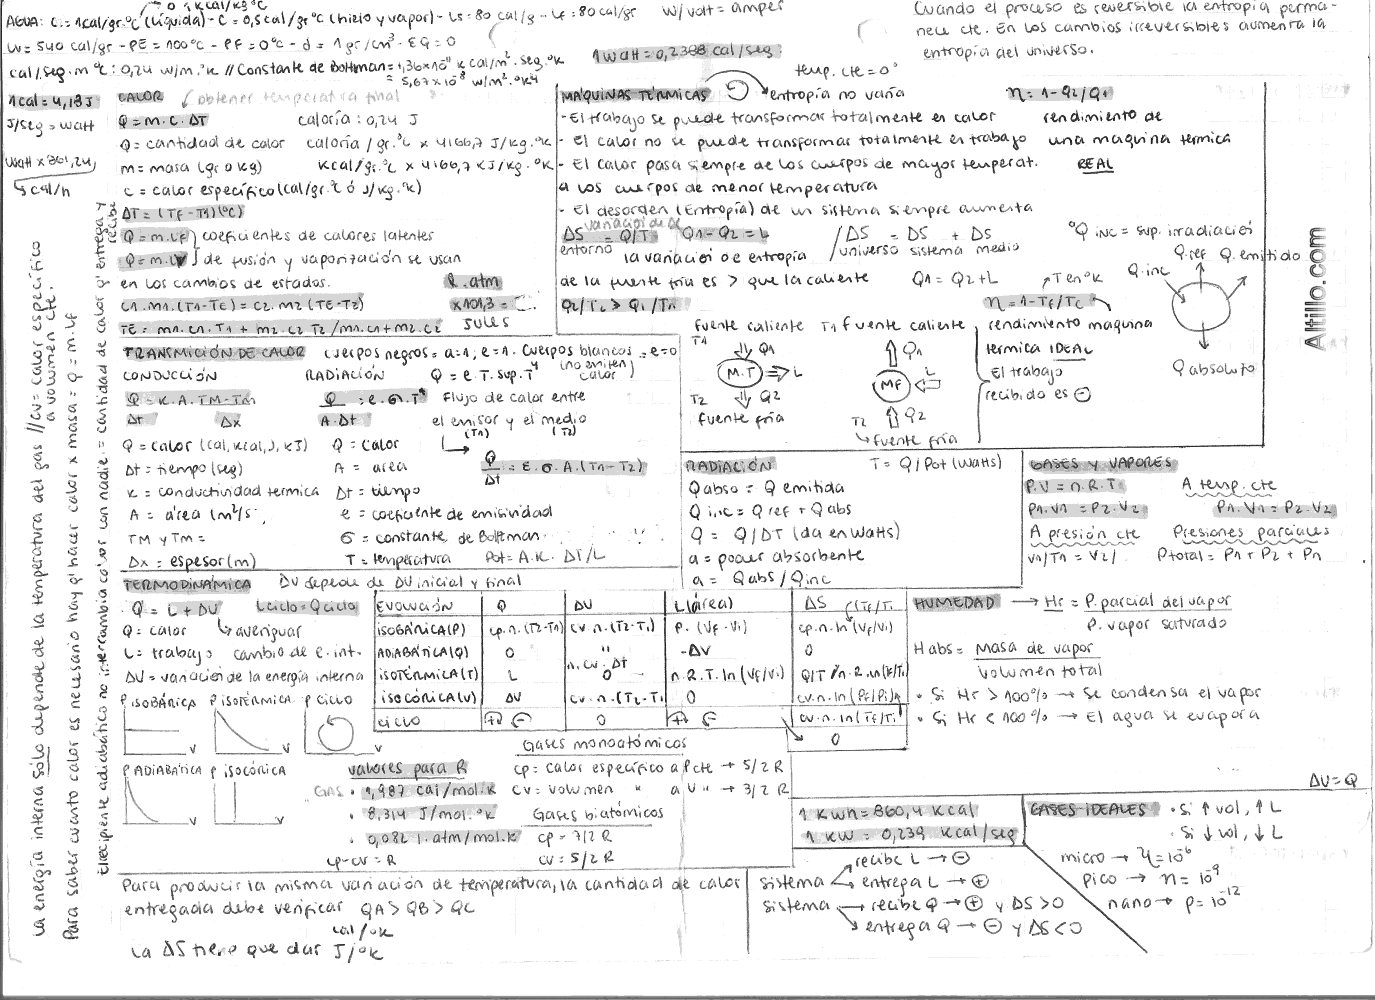 → 0 1 Kcal/Kg°C
AGUA: C = 1cal/gr.°C (Líquida) - C = 0,5cal/gr°C (hielo y vapor) - Ls = 80 cal/g - Lf = 80 cal/gr W/volt = amper
Lv = 540 cal/gr - PE = 100°C - PF = 0°C - d = 1gr/cm³ - EG = 0
cal/seg.m°C : 0,24 w/m.°K // Constante de Boltman = 1,36x10⁻¹¹ K cal/m².seg.°K
= 5,67x10⁻⁸ w/m².°K4
1 watt = 0,2388 cal/seg
Cuando el proceso es reversible la entropía perma-
nece cte. En los cambios irreversibles aumenta la
entropía del universo.
1cal = 4,18J
J/seg = watt
Watt x 861,24
↳ cal/h
CALOR
obtener temperatura final
Q = m.C.ΔT caloría : 0,24 J
Q = cantidad de calor caloría/gr.°C x 4166,7 J/kg.°K
m = masa (gr o kg) Kcal/gr.°C x 4166,7 KJ/Kg.°K
c = calor específico (cal/gr.°C ó J/kg.°K)
ΔT = (TF-T1)(°C)
Q = m.LF coeficientes de calores latentes
Q = m.LV de fusión y vaporización se usan
en los cambios de estados.
C1.m1.(T1-TE) = C2.m2(TE-T2)
TE = m1.C1.T1 + m2.C2 T2/m1.C1+m2.C2
l.atm
x101,3 =
JULES
temp. cte = 0°
MAQUINAS TÉRMICAS → entropía no varía
- El trabajo se puede transformar totalmente en calor
- El calor no se puede transformar totalmente en trabajo
- El calor pasa siempre de los cuerpos de mayor temperat.
a los cuerpos de menor temperatura
- El desorden (Entropía) de un sistema siempre aumenta
η = 1-Q2/Q1
rendimiento de
una maquina termica
REAL
ΔS = Q/T Q1-Q2 = L /ΔS = ΔS + ΔS
entorno universo sistema medio
la variación de entropía
de la fuente fría es > que la caliente Q1 = Q2+L
Q2/T2 > Q1/T1
T en °K
η = 1-TF/TC
°Q inc = sup. irradiación
Q ref Q emitida
Q inc
Q absoluto
Fuente caliente T1 Fuente caliente
T1 Q1 Q1
M.T L MF L
T2 Q2 T2 Q2
Fuente fría Fuente fría
rendimiento maquina
termica IDEAL
El trabajo
recibido es ⊖
TRANSMICIÓN DE CALOR cuerpos negros = a=1, e=1. Cuerpos blancos = e=0
(no emiten calor)
CONDUCCIÓN RADIACIÓN Q = e.T.sup.T4
Q = K.A.TM-Tm Q = e.σ.T4 Flujo de calor entre
Δt Δx A.Δt el emisor y el medio
(T1) (T2)
Q = calor (cal, kcal, J, KJ) Q = calor
Q = ε.σ.A.(T1-T2)
Δt
Δt = tiempo (seg) A = area
K = conductividad termica Δt = tiempo
A = área (m²) e = coeficiente de emisividad
TM y Tm = σ = constante de Boltman
Δx = espesor (m) T = temperatura Pot = A.K.ΔT/L
RADIACIÓN T = Q/Pot (Watts)
Q abso = Q emitida
Q inc = Q ref + Q abs
Q = Q/DT (da en Watts)
a = poder absorbente
a = Qabs/Qinc
GASES Y VAPORES
P.V = n.R.T A temp. cte
P1.V1 = P2.V2 P1.V1 = P2.V2
A presión cte Presiones parciales
V1/T1 = V2/ Ptotal = P1 + P2 + Pn
TERMODINÁMICA ΔU depende de ΔU inicial y final
Q = L + ΔU Lciclo = Qciclo
Q = calor ↳ averiguar
L = trabajo cambio de e. int.
ΔU = variación de la energía interna
EVOLUCIÓN Q ΔU L (área) ΔS
ISOBÁRICA (P) cp.n.(T2-T1) cv.n.(T2-T1) P.(VF-Vi) cp.n.ln(VF/Vi)
ADIABÁTICA (Q) 0 " -ΔU 0
ISOTÉRMICA (T) L 0 n.R.T.ln(VF/Vi) Q/T
ISOCÓRICA (V) ΔU cv.n.(T2-T1) 0 cv.n.ln(PF/Pi)
ciclo ⊕ ⊖ 0 ⊕ ⊖ cv.n.ln(TF/Ti)
0
HUMEDAD → Hr = P. parcial del vapor
P. vapor saturado
Habs = Masa de vapor
Volumen total
• Si Hr > 100% → Se condensa el vapor
• Si Hr < 100% → El agua se evapora
P ISOBÁRICA P ISOTÉRMICA P CICLO
V V V
P ADIABÁTICA P ISOCÓRICA
V V
Valores para R
GAS • 1,987 cal/mol.K
• 8,314 J/mol.°K
• 0,082 l.atm/mol.K
cp-cv = R
Gases monoatómicos
cp = calor específico a P cte → 5/2 R
cv = volumen " a V " → 3/2 R
Gases biatómicos
cp = 7/2 R
cv = 5/2 R
ΔU = Q
1 Kwh = 860,4 Kcal
1 KW = 0,239 Kcal/seg
GASES IDEALES • Si ↑ vol, ↑ L
• Si ↓ vol, ↓ L
micro → μ = 10⁻⁶
pico → n = 10⁻⁹
nano → p = 10⁻¹²
sistema recibe L → ⊖
entrega L → ⊕
sistema recibe Q → ⊕ y ΔS>0
entrega Q → ⊖ y ΔS<0
Para producir la misma variación de temperatura, la cantidad de calor
entregada debe verificar QA > QB > QC
cal/°K
La ΔS tiene que dar J/°K
La energía interna sólo depende de la temperatura del gas // cv = calor específico
a volumen cte.
Para saber cuanto calor es necesario hay q' hacer calor x masa = Q = m.LF
El recipiente adiabático no intercambia calor con nadie. = cantidad de calor q' entrega y
recibe
Altillo.com